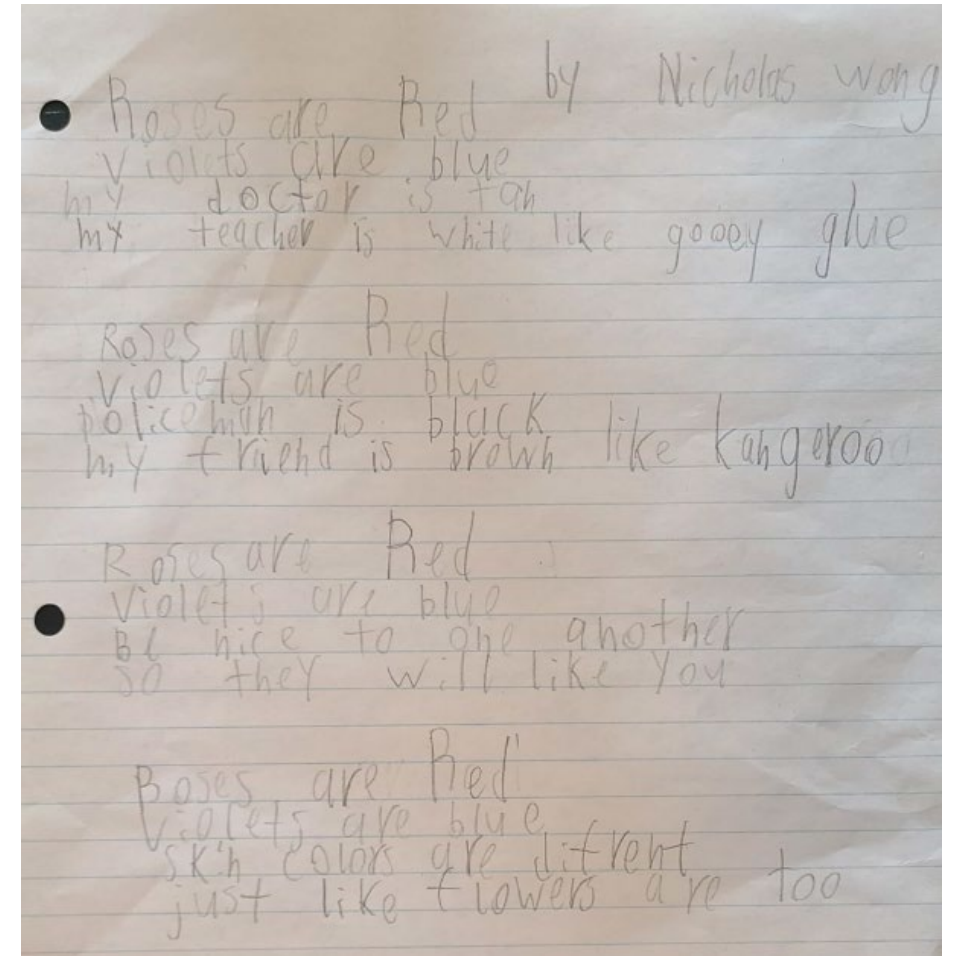 by Nicholas wong
Roses are Red
violets are blue
my doctor is tan
my teacher is white like gooey glue
Roses are Red
violets are blue
policeman is black
my friend is brown like kangeroo
Roses are Red
violets are blue
Be nice to one another
so they will like you
Roses are Red
violets are blue
skin colors are difrent
just like flowers are too